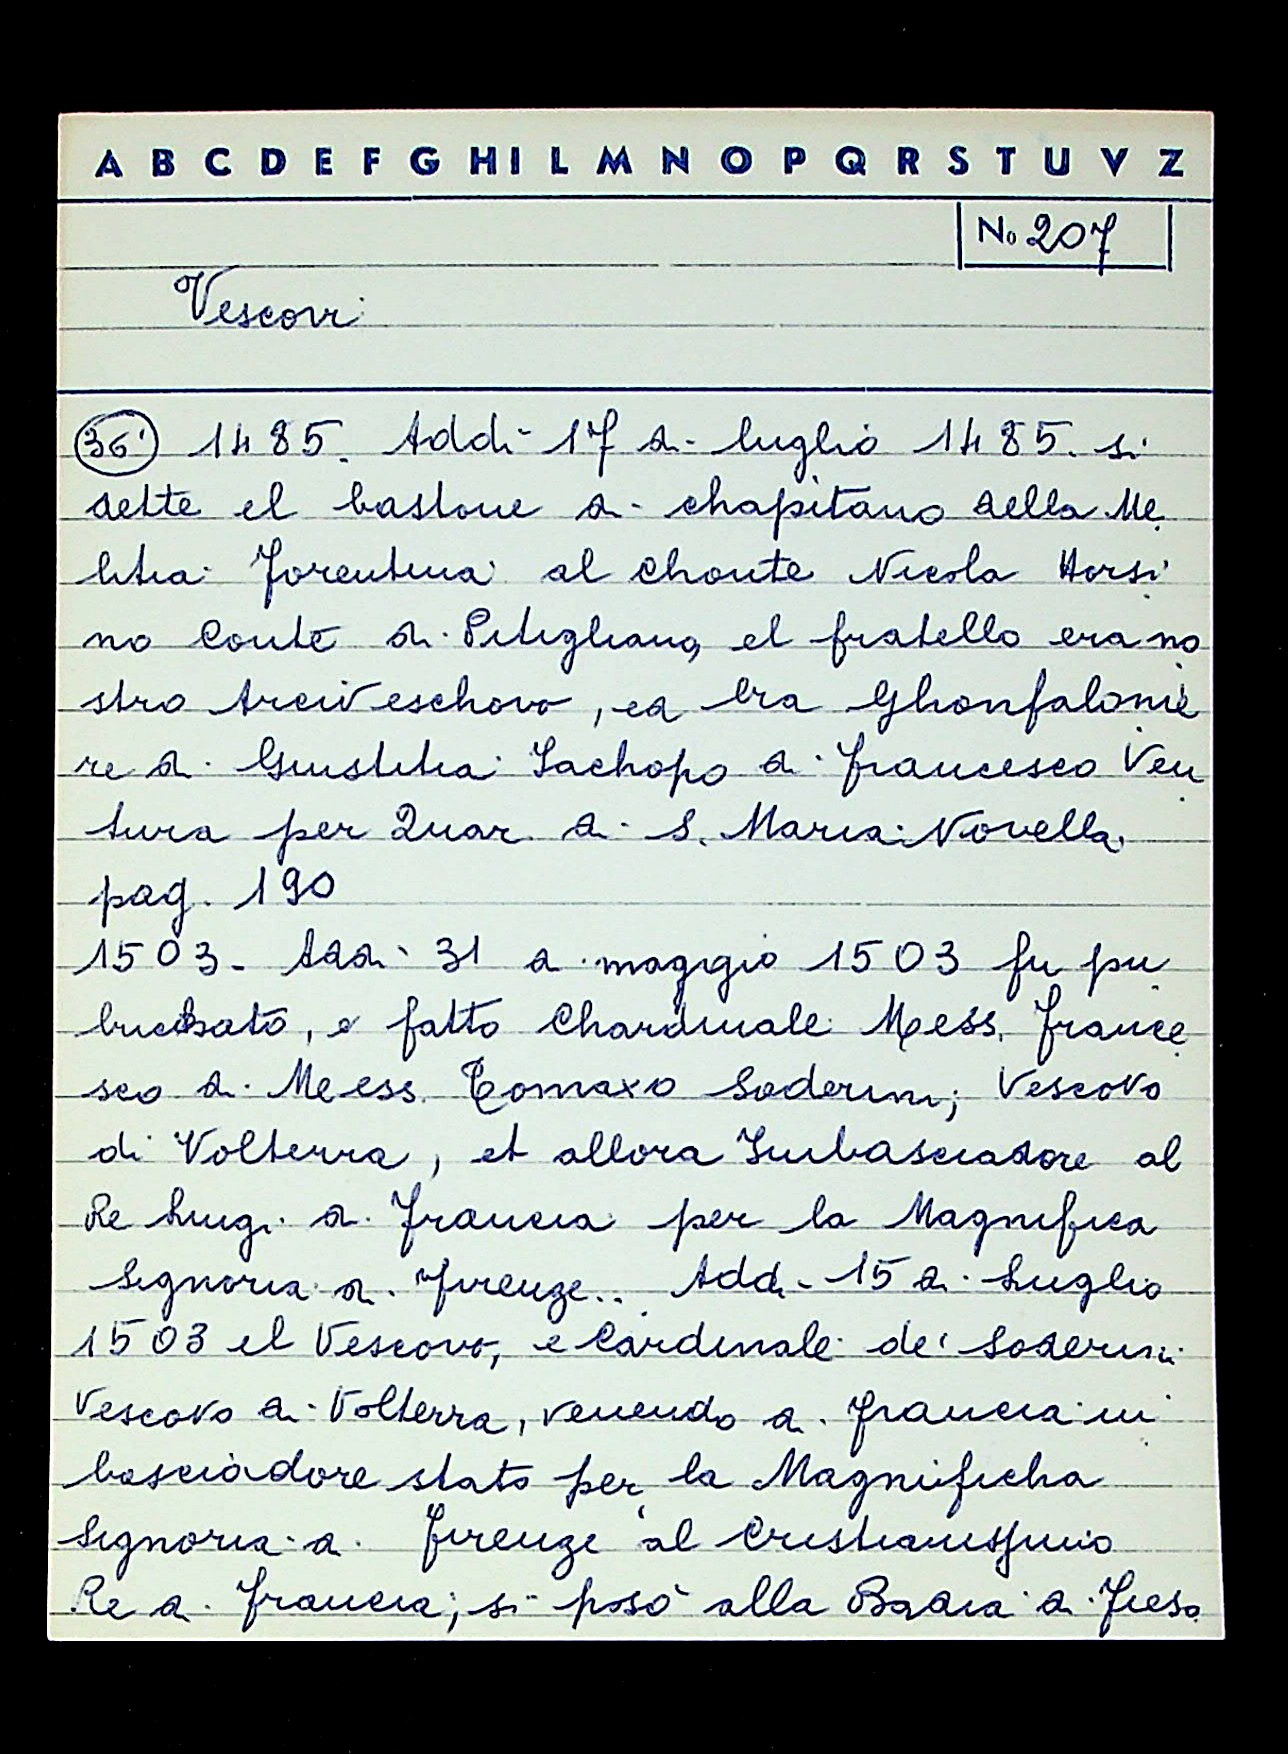 A B C D E F G H I L M N O P Q R S T U V Z
No 207
Vescovi
36' 1485. Addi 17 di luglio 1485. si
dette el bastone di chapitano della Me
litia Forentina al Chonte Nicola Horsi
no Conte di Pitigliano, el fratello era no
stro Arciveschovo, ed era Ghonfalonie
re di Giustitia Iachopo di Francesco Ven
tura per Quar. di S. Maria Novella.
pag. 190
1503. Addi 31 di maggio 1503 fu pu
bricato, e fatto Chardinale Mess. France
sco di Mess. Tomaxo Soderini; Vescovo
di Volterra, et allora Imbasciadore al
Re Luigi di Francia per la Magnifica
Signoria di Firenze.. Addi 15 di Luglio
1503 el Vescovo, e Cardinale de' Soderini
Vescovo di Volterra, venendo di Francia im
basciadore stato per la Magnificha
Signoria di Firenze al Cristianissimo
Re di Francia; si posò alla Badia di Fieso